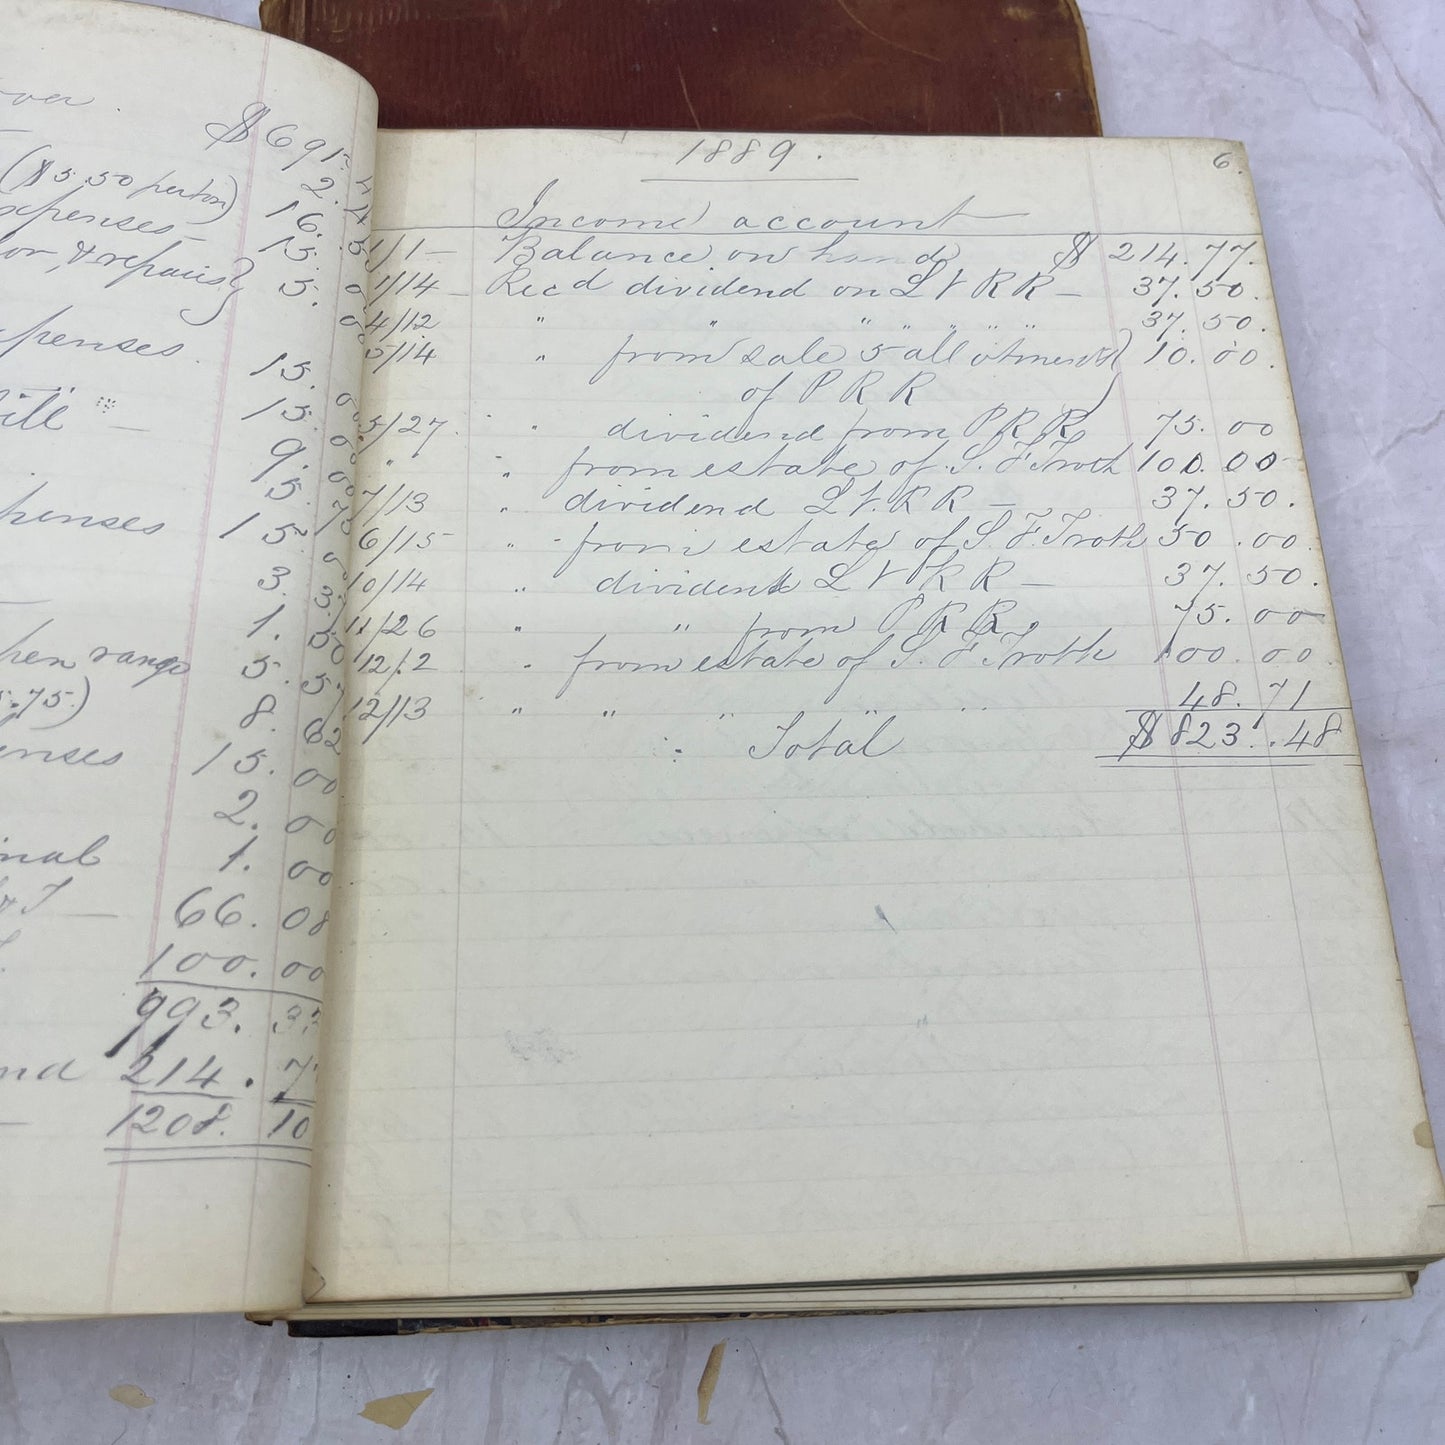 $691.
($5.50 per ton) 2.
expenses — 16.
or, & repairs} 15.
5.
expenses.
15.
15. 00
9. 00
5. 00
expenses 15. 75
3. 00
1. 37
5. 50
5.75.) 8. 57
enses 15. 62
2. 00
1. 00
66. 08
100. 00
993. 33
nd 214. 7
1208. 10
1889.
6.
Income account
1/1 — Balance on hand $ 214.77.
1/14 — Recd dividend on L V R R — 37.50.
4/12 " " " " " " " 37.50.
5/14 " from sale 5 allotments) 10.00.
of P R R )
5/27. " dividend from P R R, 75.00
" " from estate of S. F. Troth 100.00
7/13 " dividend L V. R R — 37.50.
6/15 " from estate of S. F. Troth 50.00.
10/14 " dividend L V R R — 37.50.
11/26 " " from P R R, 75.00
12/2 " from estate of S. F. Troth 100.00.
12/13 " " " " " 48.71
Total $823.48